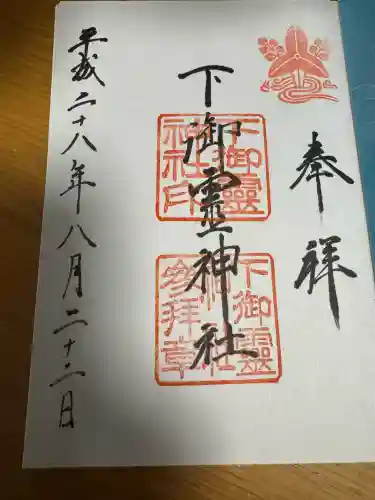 奉祥
下御靈神社
下御靈神社印
下御靈神社参拝章
平成二十八年八月二十二日